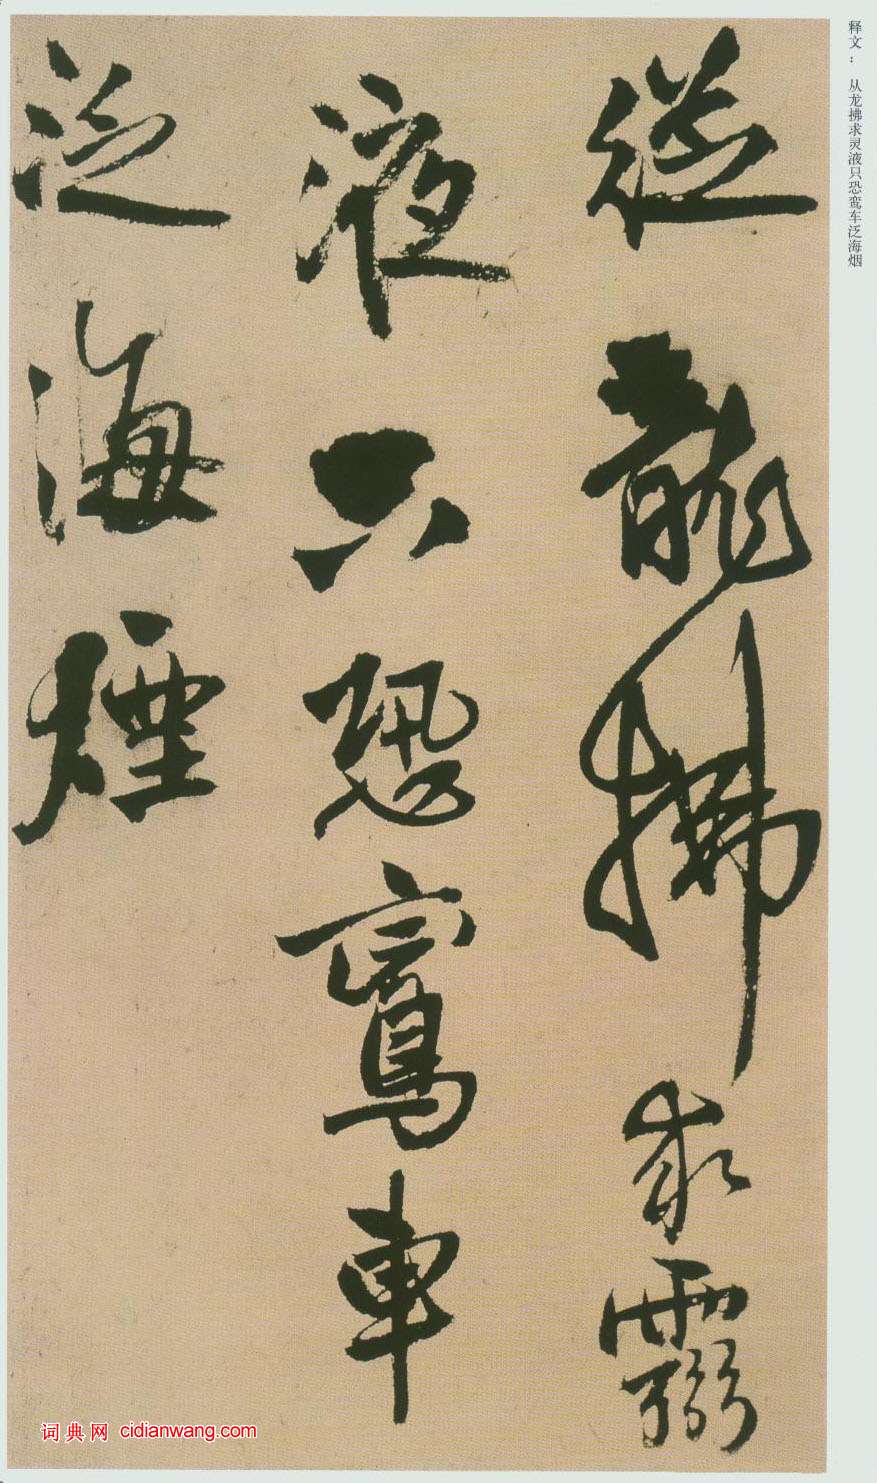 释文： 从龙拂求灵液只恐鸾车泛海烟
從龍拂求靈
液只恐鸞車
泛海煙
词典网 cidianwang.com